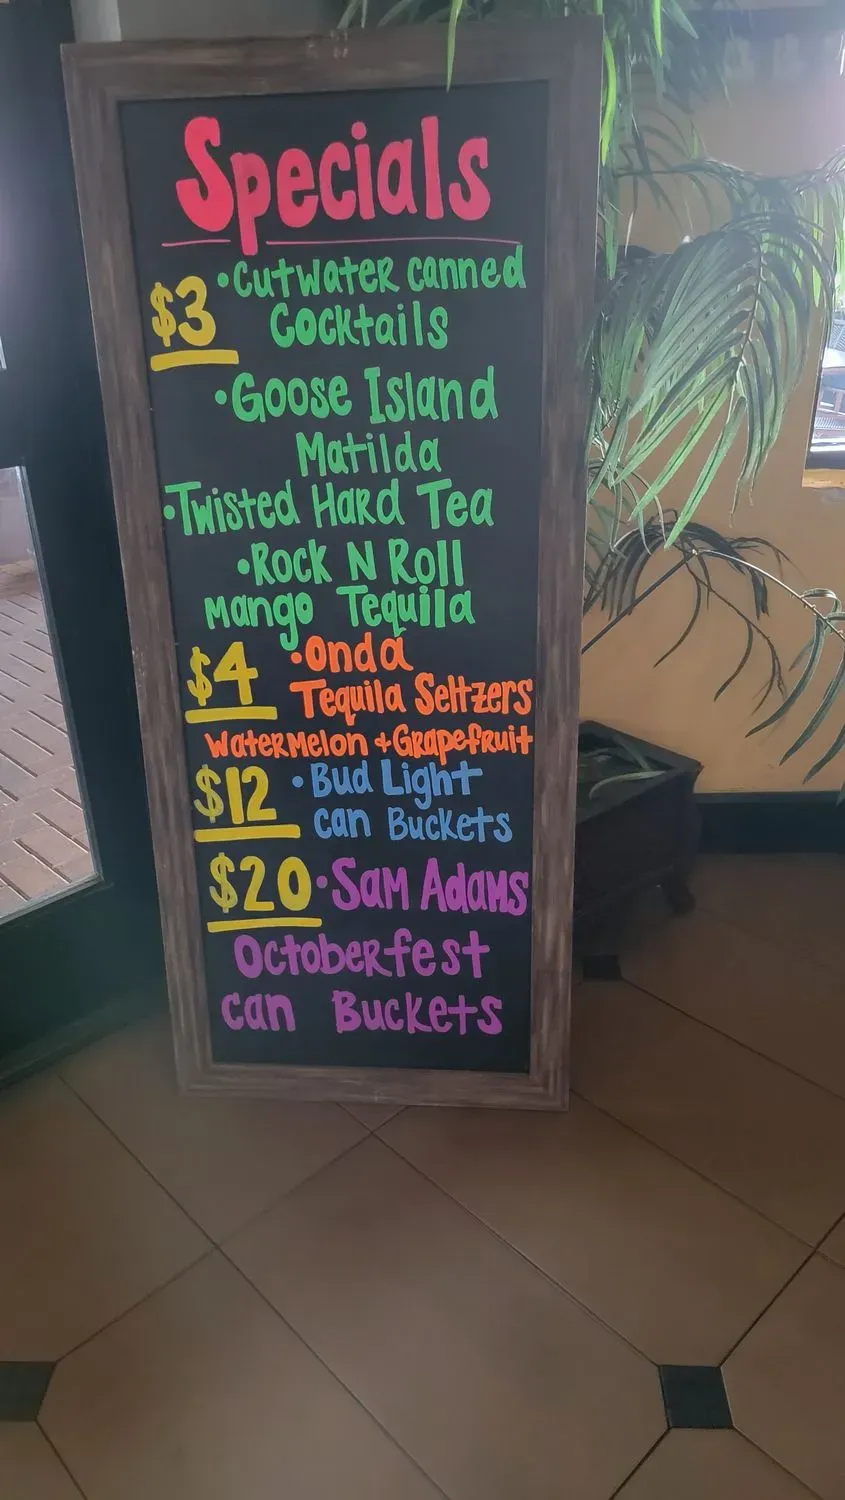 Specials
$3 •Cutwater canned
Cocktails
•Goose Island
Matilda
•Twisted Hard Tea
•Rock N Roll
Mango Tequila
$4 •Onda
Tequila Seltzers
Watermelon + Grapefruit
$12 •Bud Light
can Buckets
$20 •Sam Adams
Octoberfest
can Buckets